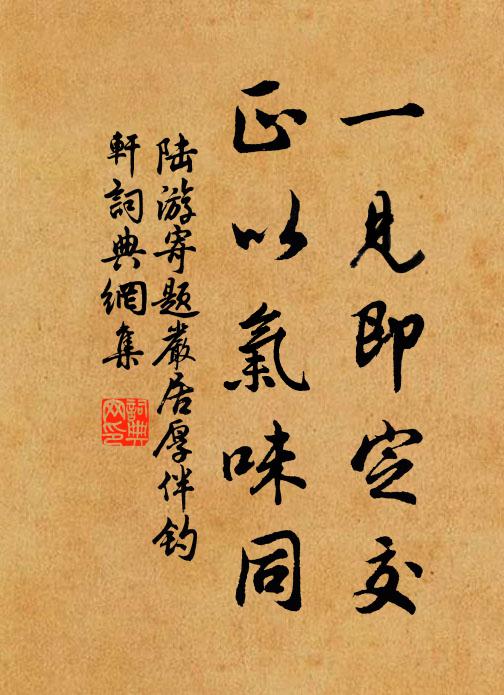 一見即定交
正以氣味同
陸游寄題嚴居厚伴釣
軒詞典網集
詞典
网印